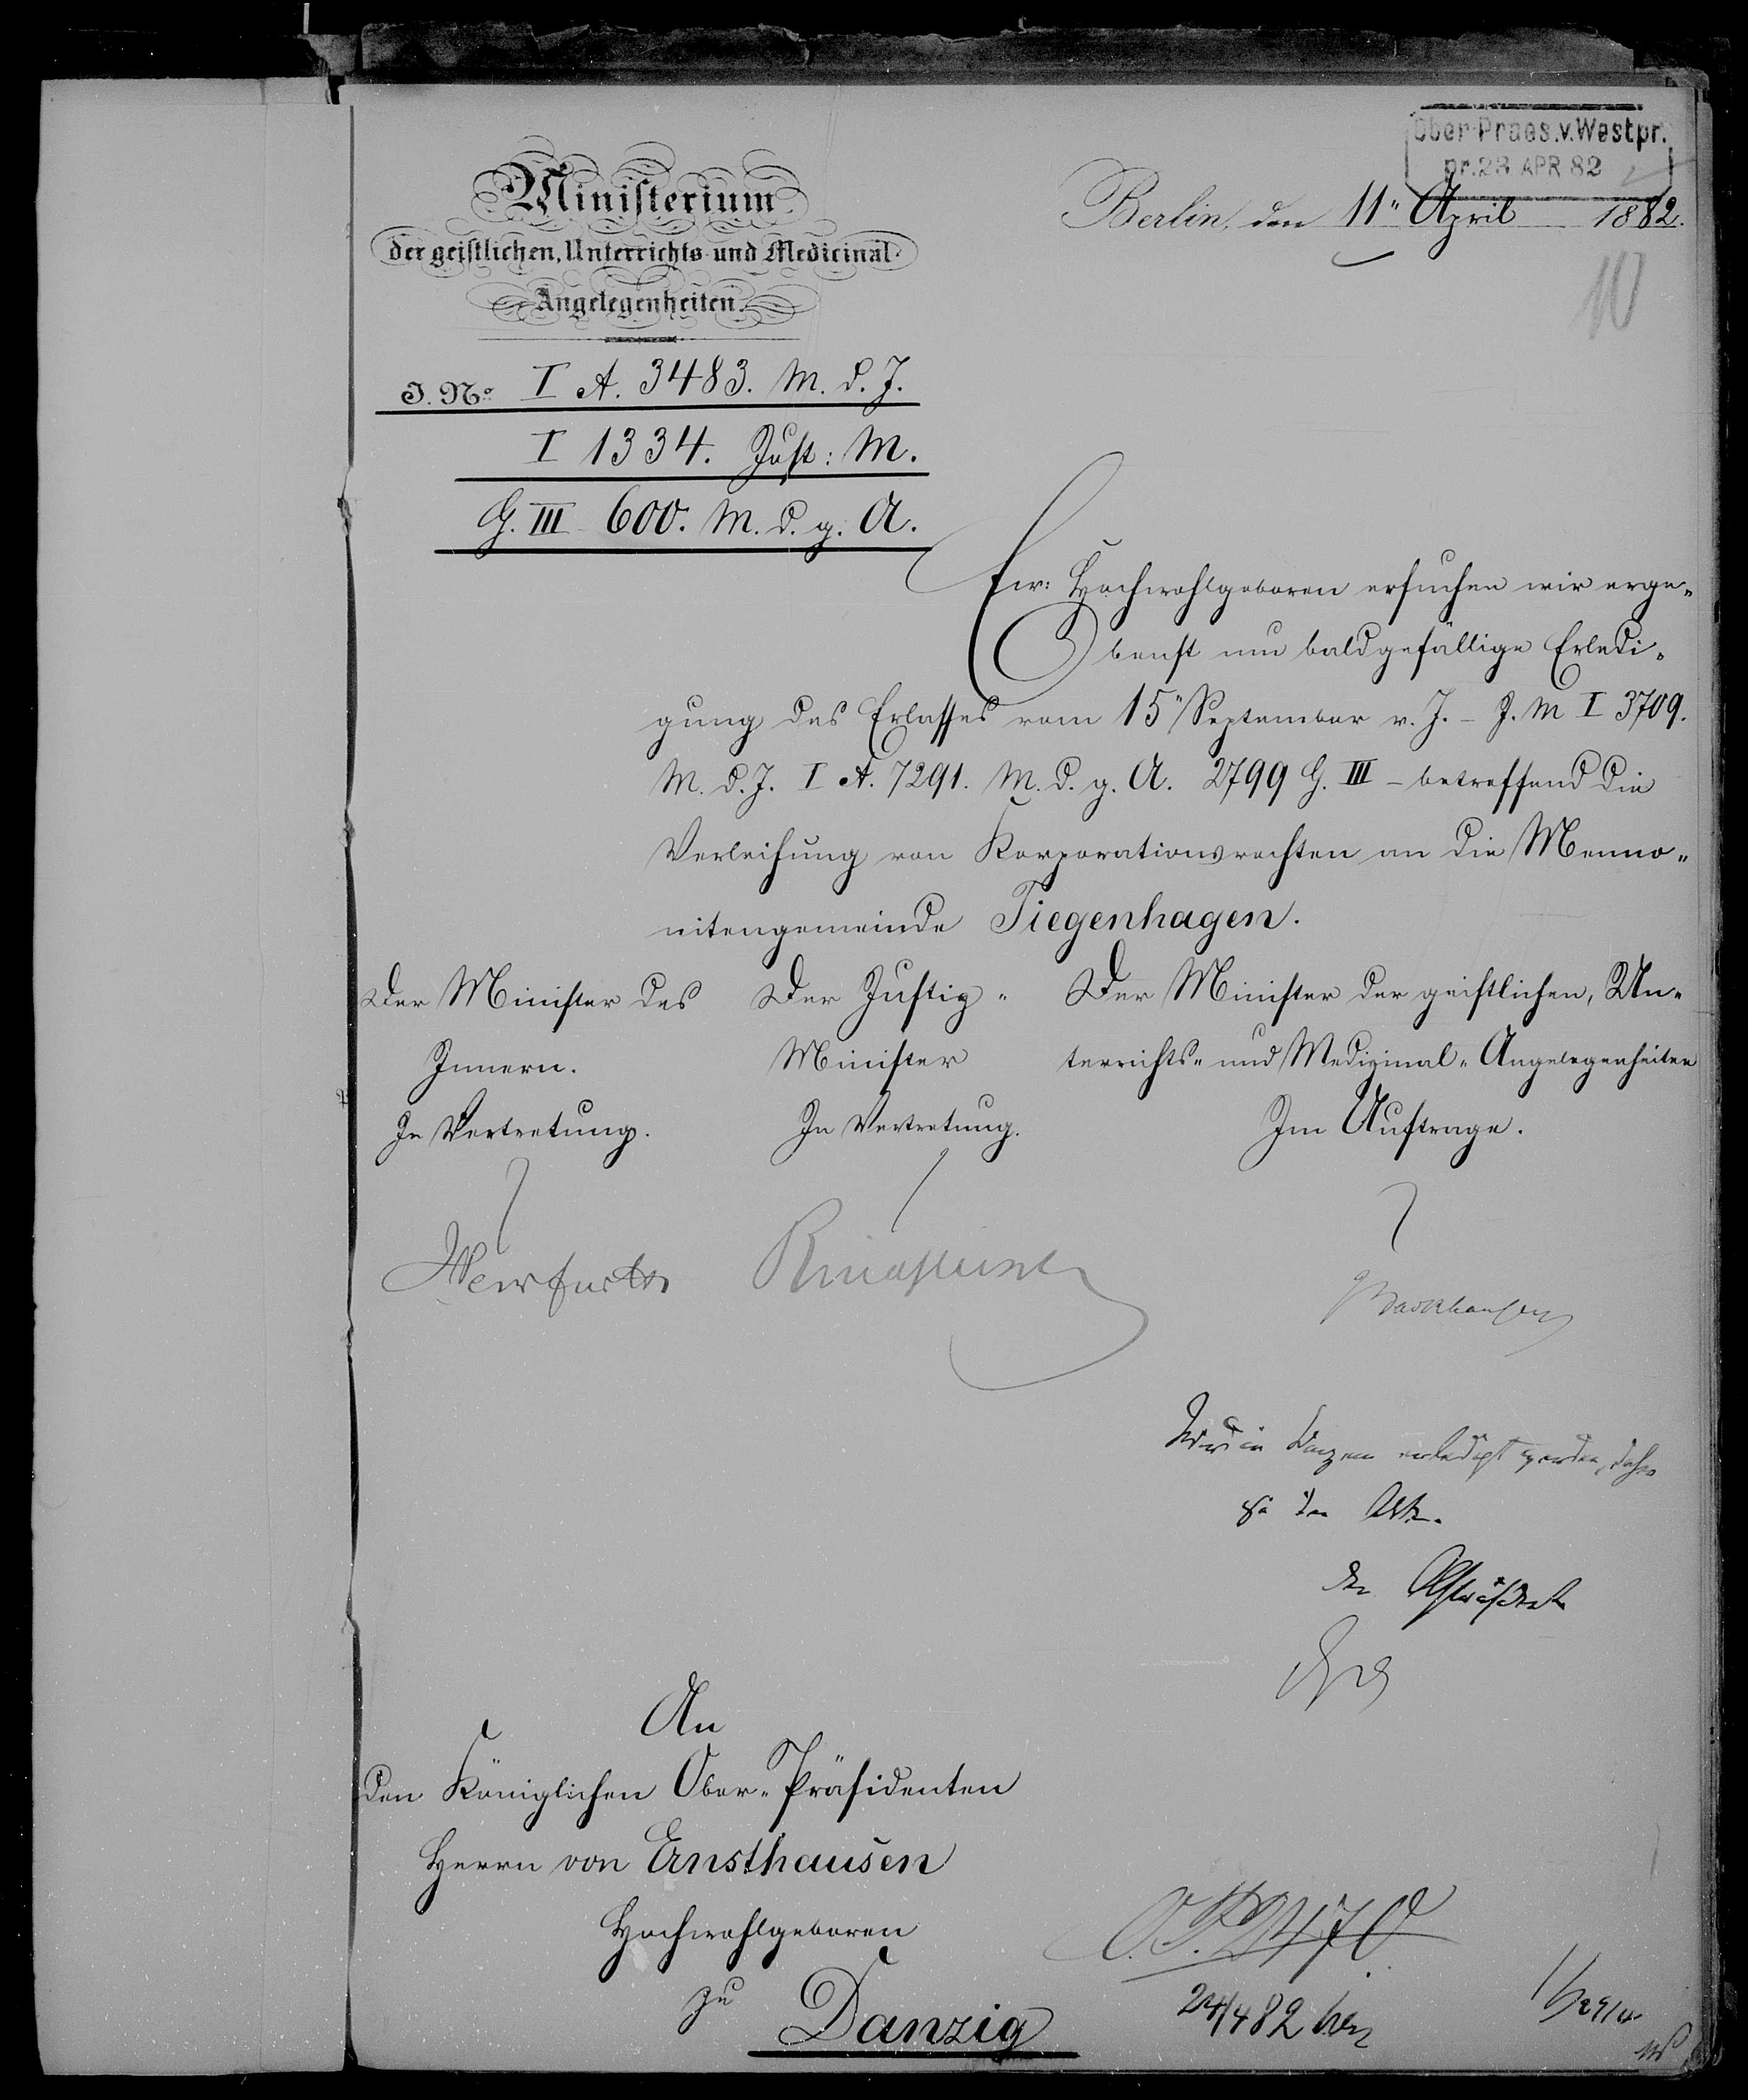 Ober-Praes.v.Westpr.
pr. 23 APR 82
Ministerium
der geistlichen, Unterrichts- und Medicinal-
Angelegenheiten.
Berlin, den 11ten April 1882.
10
J. No. I A. 3483. M. d. J.
I 1334. Just: M.
G. III 600. M. d. g. A.
Ew: Hochwohlgeboren ersuchen wir erge-
benst um baldgefällige Erledi-
gung des Erlasses vom 15ten September v. J. – J. M I 3709.
M. d. J. I A. 7291. M. d. g. A. 2799 G. III – betreffend die
Verleihung von Korporationsrechten an die Menno-
nitengemeinde Tiegenhagen.
Der Minister des
Innern.
In Vertretung.
Der Justiz-
Minister
In Vertretung.
Der Minister der geistlichen, Un-
terrichts- und Medizinal-Angelegenheiten
Im Auftrage.
Barkhausen
erledigt werden, daher
zu den Akten.
Der Oberpräsident
An
den Königlichen Ober-Präsidenten
Herrn von Ernsthausen
Hochwohlgeboren
zu
Danzig
O.P. 2470
24/4 82